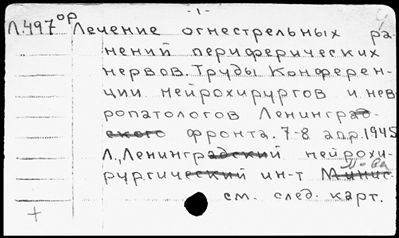 - 1 -
Л.497 ор Лечение огнестрельных ра-
нений периферических
нервов. Труды Конферен-
ции нейрохирургов и нев-
ропатологов Ленинград-
ского фронта. 7-8 апр. 1945
Л., Ленинградский нейрохи-
рургический ин-т Минис-
см. след. карт.